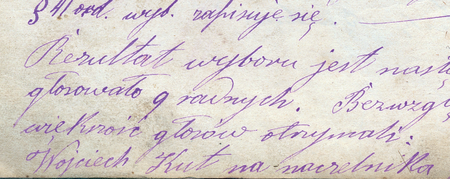 § 41 ord. wyb. zapisuje się.
Rezultat wyboru jest nastę
głosowało 9 radnych. Bezwzglę
większość głosów otrzymali:
Wojciech Kut na naczelnika